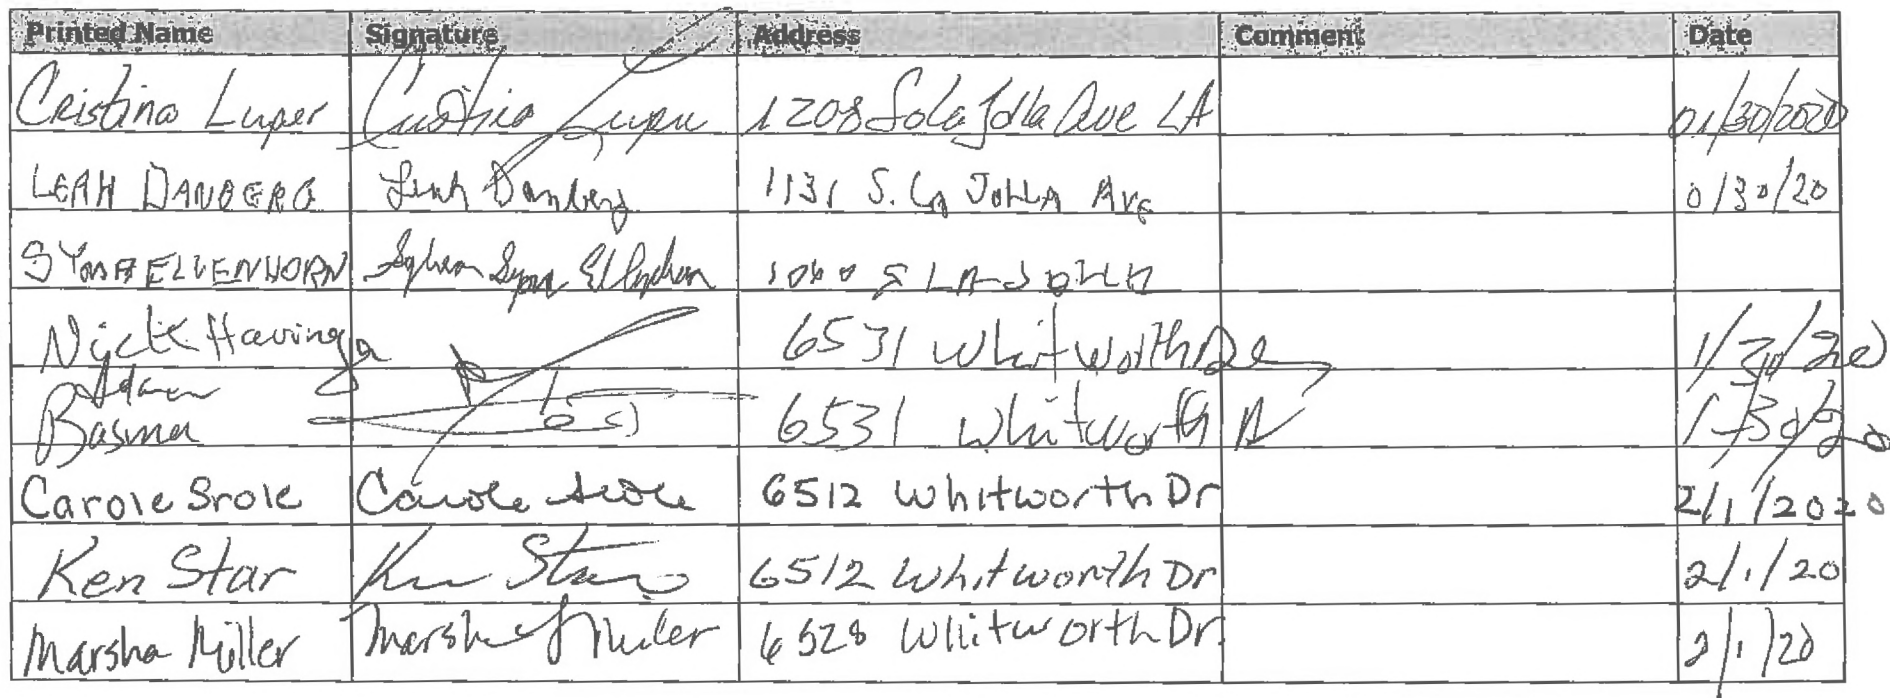 Printed Name Signature Address Comment Date
Cristina Luper 1208 So La Jolla Ave LA 01/30/2020
LEAH DANBERG Leah Danberg 1131 S. La JOLLA AVE 0/30/20
ELLENHORN 1060 S LA JOLLA
Nick Havinga 6531 Whitworth Dr 1/30/20
Adam
Basma 6531 Whitworth D 1-30/20
Carole Srole Carole Srole 6512 Whitworth Dr 2/1/2020
Ken Star Ken Star 6512 Whitworth Dr 2/1/20
Marsha Miller Marsha Miller 6528 Whitworth Dr. 2/1/20